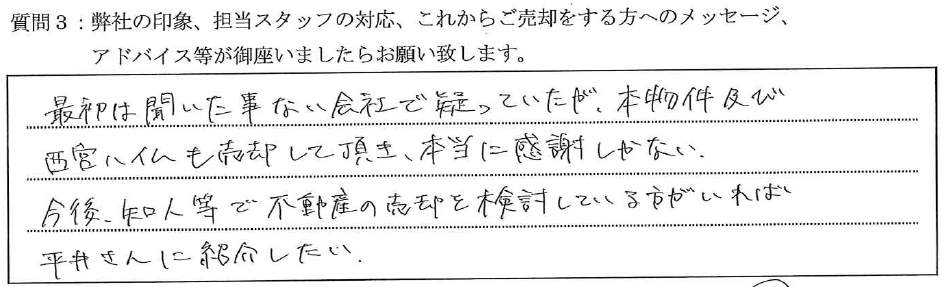 質問3：弊社の印象、担当スタッフの対応、これからご売却をする方へのメッセージ、
アドバイス等が御座いましたらお願い致します。
最初は聞いた事ない会社で疑っていたが、本物件及び
西宮ハイムも売却して頂き、本当に感謝しかない.
今後、知人等で不動産の売却を検討している方がいれば
平井さんに紹介したい.